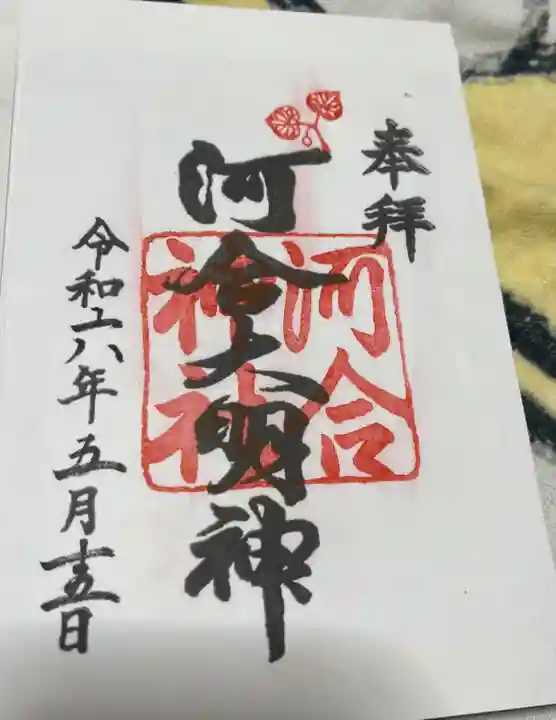 奉拝
河合大明神
河合神社
令和六年五月十五日